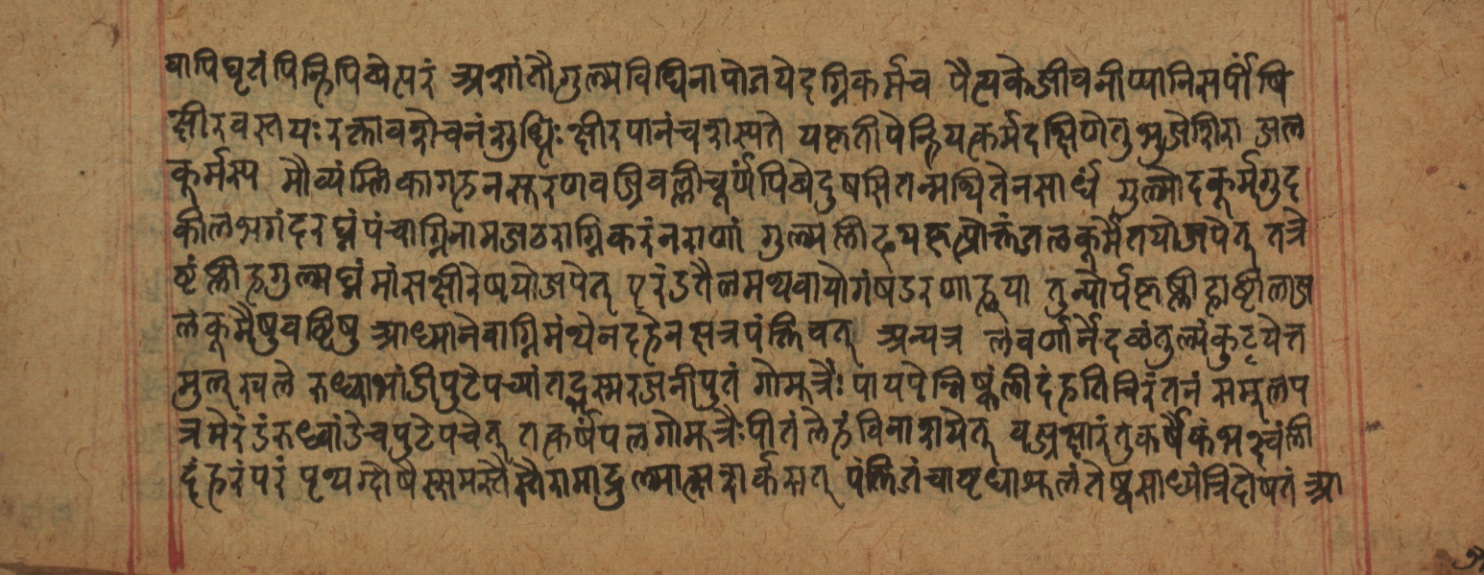 यापिघृतंपिन्हिपिबेत्परं अशांतौगुल्मविधिनापातयेदग्निकर्मच पैत्यकेजीवनीप्यानिसर्पींषि
क्षीरवस्तयःरक्तावशेचनंशुध्धिःक्षीरपानंचशस्यते यकृतीपेन्हियत्कर्मदक्षिणेतुभुजेशिरा जल
कूर्मस्य मौव्यंम्लिकागहनस्तरणवज्रिवल्लीचूर्णंपिबेदुषसितन्मथितेनसार्धं गुल्मोदकूर्मगुद
कीलभगंदरघ्नंपंचाग्निनामजठराग्निकरंनराणां गुल्मप्लीहयकृत्प्रोक्तंजलकूर्मेतयोजपेत् तत्रे
ष्टंप्लीहगुल्मघ्नंमांसक्षीरेषयोजपेत् एरंडतैलमथवायोगंषडरणाह्वया तुन्योर्पकृष्प्लीहाष्टीलाज
लकूर्मेषुवष्टिषु आध्मानेवाग्निमंथेनदहेनसत्रपंक्तिवत् अन्यत्र लवर्णार्नेदळंतुल्यंकुट्टयेत्त
मुलूखले रुध्वाभांडीपुटेपच्यांतद्भस्मरजनीपुतं गोमूत्रैःपाययेन्निष्कंप्लीदंहतिचिरंतनं समूलप
त्रमेरंडंरुध्वांडेचपुटेपचेत् तत्कर्षंपलगोमूत्रैःपीतंलेहंविनाशयेत् यवक्षारंतुकर्षैकंभक्ष्यंप्ली
दंहरंपरं पृथग्दोषैस्समस्तैस्तैरामाद्गुल्मात्सशर्करात् पंक्तिजंचावृधाशूलंतेष्वसाध्यंत्रिदोषतं आ